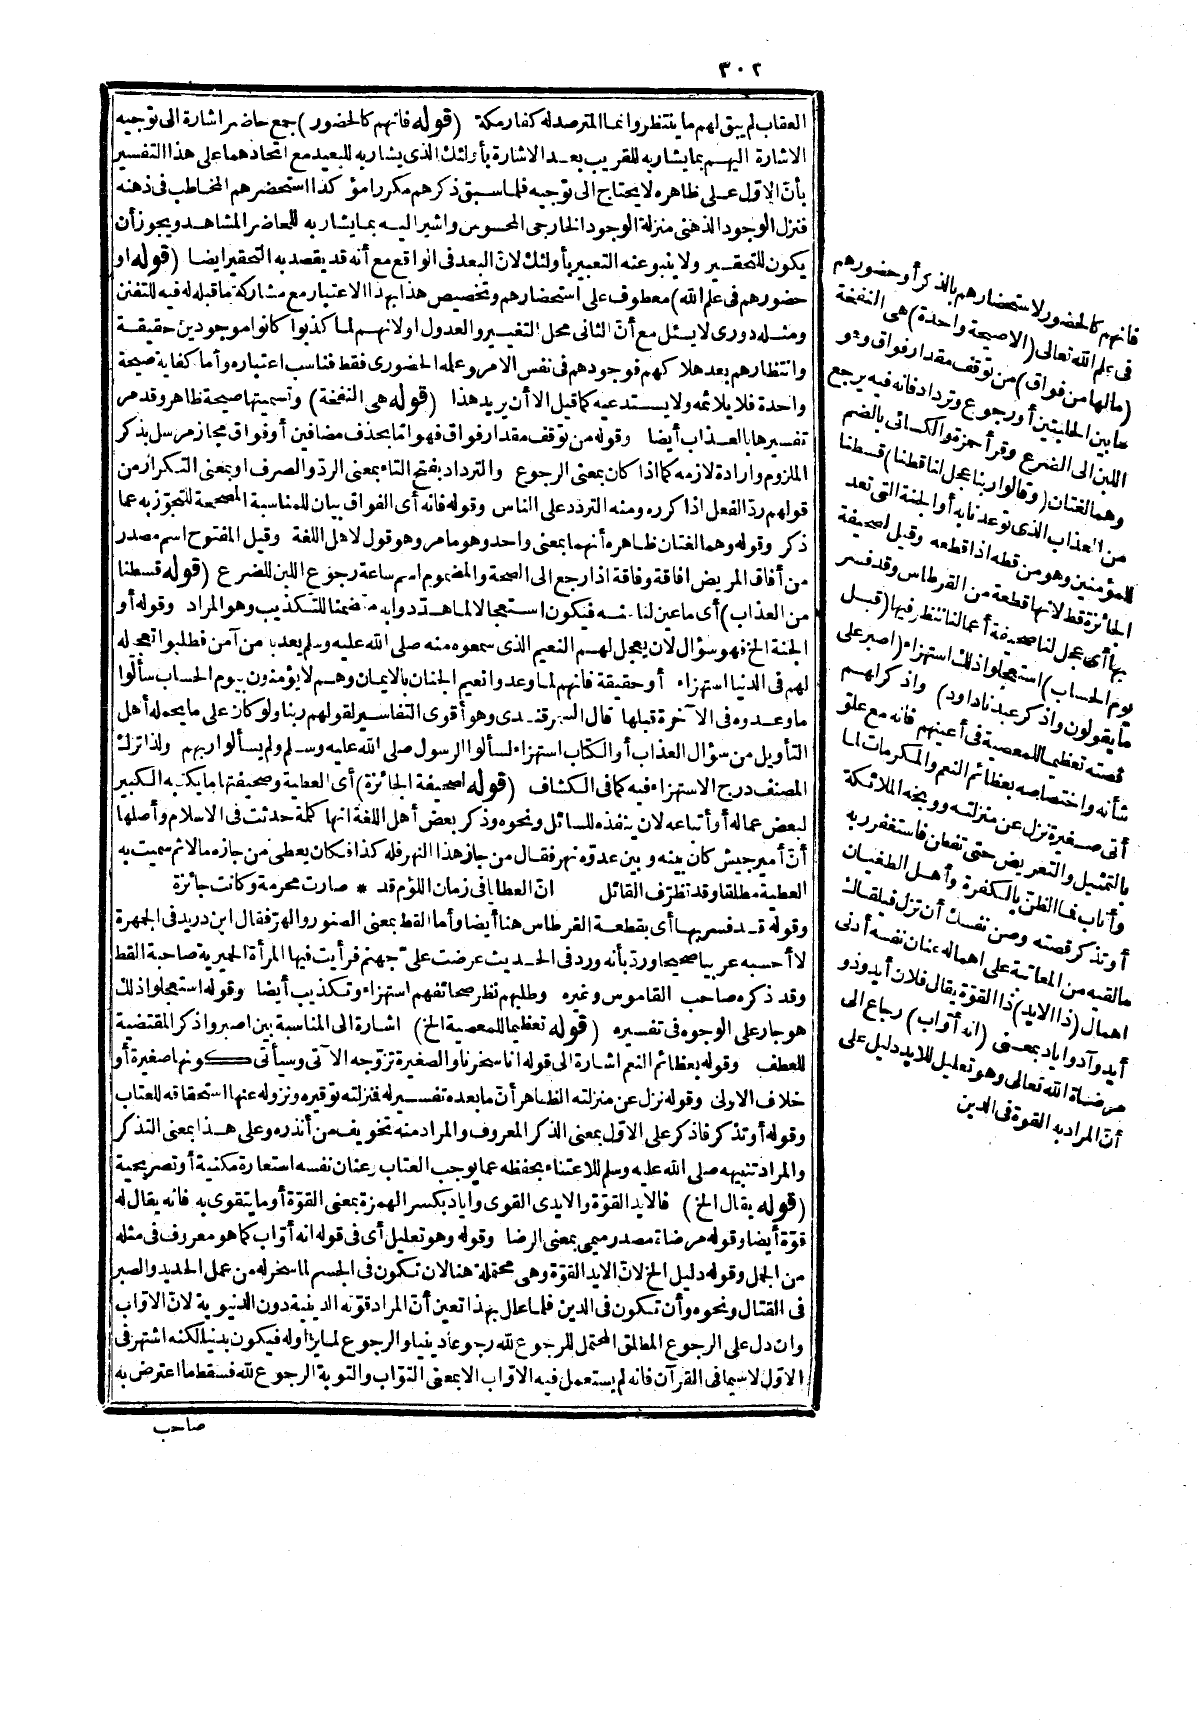 ٣٠٢
العقاب لم يبق لهم ما ينتظروا نما المترصد له كفار مكة (قوله فانهم كالحضور) جمع حاضر اشارة الى توجيه
الاشارة اليهم بما يشار به للقريب بعد الاشارة بأولئك الذى يشار به للبعيد مع اتحادهما على هذا التفسير
بأن الاول على ظاهره لا يحتاج الى توجيه فلما سبق ذكرهم مكررا مؤكدا استحضرهم المخاطب فى ذهنه
فنزل الوجود الذهنى منزلة الوجود الخارجى المحسوس واشير اليه بما يشار به للحاضر المشاهد ويجوز أن
يكون للتحقير ولا ينبو عنه التعبير بأولئك لان البعد فى الواقع مع أنه قد يقصد به التحقير ايضا (قوله او
حضورهم فى علم الله) معطوف على استحضارهم وتخصيص هذا بهذا الاعتبار مع مشاركة ما قبله له فيه للتفنن
ومثله دورى لا يسئل مع أن الثانى محل التغيير والعدول اولانهم لما كذبوا كانوا موجودين حقيقة
وانتظارهم بعد هلاكهم فوجودهم فى نفس الامر وعلمه الحضورى فقط فناسب اعتباره وأما كفاية صيحة
واحدة فلا يلائمه ولا يستدعيه كما قيل الا أن يريد هذا (قوله هى النفخة) وتسميتها صيحة ظاهر وقد مر
تفسيرها بالعذاب أيضا وقوله من توقف مقدار فواق فهو اما بحذف مضافين أو فواق مجاز مرسل بذكر
الملزوم وارادة لازمه كما اذا كان بمعنى الرجوع والترداد بفتح التاء بمعنى الرد والصرف او بمعنى التكرار من
قولهم رد الفعل اذا كرره ومنه التردد على الناس وقوله فانه أى الفواق بيان للمناسبة المصححة للتجوز به عما
ذكر وقوله وهما لغتان ظاهره أنهما بمعنى واحد وهو ما مر وهو قول لاهل اللغة وقيل المفتوح اسم مصدر
من أفاق المريض افاقة وفاقة اذا رجع الى الصحة والمضموم اسم ساعة رجوع اللبن للضرع (قوله قسطنا
من العذاب) أى ما عين لنا منه فيكون استعجالا لما هددوا به متضمنا للتكذيب وهو المراد وقوله أو
الجنة الخ فهو سؤال لان يعجل لهم النعيم الذى سمعوه منه صلى الله عليه وسلم يعد به من آمن فطلبوا تعجيله
لهم فى الدنيا استهزاء أو حقيقة فانهم لما وعدوا نعيم الجنان بالايمان وهم لا يؤمنون بيوم الحساب سألوا
ما وعدوه فى الآخرة قبلها قال السمرقندى وهو أقوى التفاسير لقولهم ربنا ولو كان على ما يحمله أهل
التأويل من سؤال العذاب أو الكتاب استهزاء لسألوا الرسول صلى الله عليه وسلم ولم يسألوا ربهم ولذا ترك
المصنف درج الاستهزاء فيه كما فى الكشاف (قوله لصحيفة الجائزة) أى العطية وصحيفتها ما يكتبه الكبير
لبعض عماله أو أتباعه لان ينفذه للسائل ونحوه وذكر بعض أهل اللغة انها كلمة حدثت فى الاسلام وأصلها
أن أمير جيش كان بينه وبين عدوه نهر فقال من جاز هذا النهر فله كذا فكان يعطى من جازه مالا ثم سميت به
العطية مطلقا وقد تظرف القائل ان العطايا فى زمان اللؤم قد * صارت محرمة وكانت جائزة
وقوله قد فسر بها أى بقطعة القرطاس هنا أيضا وأما القط بمعنى السنور والهر فقال ابن دريد فى الجمهرة
لا أحسبه عربيا صحيحا ورد بأنه ورد فى الحديث عرضت على جهنم فرأيت فيها المرأة الحميرية صاحبة القط
وقد ذكره صاحب القاموس وغيره وطلبهم نظر صحائفهم استهزاء وتكذيب أيضا وقوله استعجلوا ذلك
هو جار على الوجوه فى تفسيره (قوله تعظيما للمعصية الخ) اشارة الى المناسبة بين اصبر واذكر المقتضية
للعطف وقوله بعظائم النعم اشارة الى قوله انا سخرنا والصغيرة تزوجه الآتى وسيأتى كونها صغيرة أو
خلاف الاولى وقوله نزل عن منزلته الظاهر أن ما بعده تفسير له فمنزلته توقيره ونزوله عنها استحقاقه للعتاب
وقوله أو تذكر فاذكر على الاول بمعنى الذكر المعروف والمراد منه تخويف من أنذره وعلى هذا بمعنى التذكر
والمراد تنبيهه صلى الله عليه وسلم للاعتناء بحفظه عما يوجب العتاب وعنان نفسه استعارة مكنية أو تصريحية
(قوله يقال الخ) فالايد القوة والايدى القوى واياد بكسر الهمزة بمعنى القوة أو ما يتقوى به فانه يقال له
قوة أيضا وقوله مرضاة مصدر ميمى بمعنى الرضا وقوله وهو تعليل أى فى قوله انه أواب كما هو معروف فى مثله
من الجمل وقوله دليل الخ لان الايد القوة وهى محتملة هنا لان تكون فى الجسم لما سخر له من عمل الحديد والصبر
فى القتال ونحوه وأن تكون فى الدين فلما علل بهذا تعين أن المراد قوته الدينية دون الدنيوية لان الاواب
وان دل على الرجوع المطلق المحتمل للرجوع لله رجوعا دينيا والرجوع لما يزاوله فيكون بدنيا لكنه اشتهر فى
الاول لا سيما فى القرآن فانه لم يستعمل فيه الاواب الا بمعنى التواب والتوبة الرجوع لله فسقط ما اعترض به
صاحب
فانهم كالحضور لاستحضارهم بالذكر أو حضورهم
فى علم الله تعالى (الا صيحة واحدة) هى النفخة
(ما لها من فواق) من توقف مقدار فواق وهو
ما بين الحلبتين أو رجوع وترداد فانه فيه يرجع
اللبن الى الضرع وقرأ حمزة والكسائى بالضم
وهما لغتان (وقالوا ربنا عجل لنا قطنا) قسطنا
من العذاب الذى توعدنا به أو الجنة التى تعد
للمؤمنين وهو من قطه اذا قطعه وقيل لصحيفة
الجائزة قط لانها قطعة من القرطاس وقد فسر
بها أى عجل لنا صحيفة أعمالنا ننظر فيها (قبل
يوم الحساب) استعجلوا ذلك استهزاء (اصبر على
ما يقولون واذكر عبدنا داود) واذكر لهم
قصته تعظيما للمعصية فى أعينهم فانه مع علو
شأنه واختصاصه بعظائم النعم والمكرمات لما
أتى صغيرة نزل عن منزلته ووبخه الملائكة
بالتمثيل والتعريض حتى تفطن فاستغفر ربه
وأناب فما الظن بالكفرة وأهل الطغيان
أو تذكر قصته وصن نفسك أن تزل فيلقاك
ما لقيه من المعاتبة على اهماله عنان نفسه أدنى
اهمال (ذا الايد) ذا القوة يقال فلان أيد وذو
أيد وآد واياد بمعنى (انه أواب) رجاع الى
مرضاة الله تعالى وهو تعليل للايد دليل على
أن المراد به القوة فى الدين